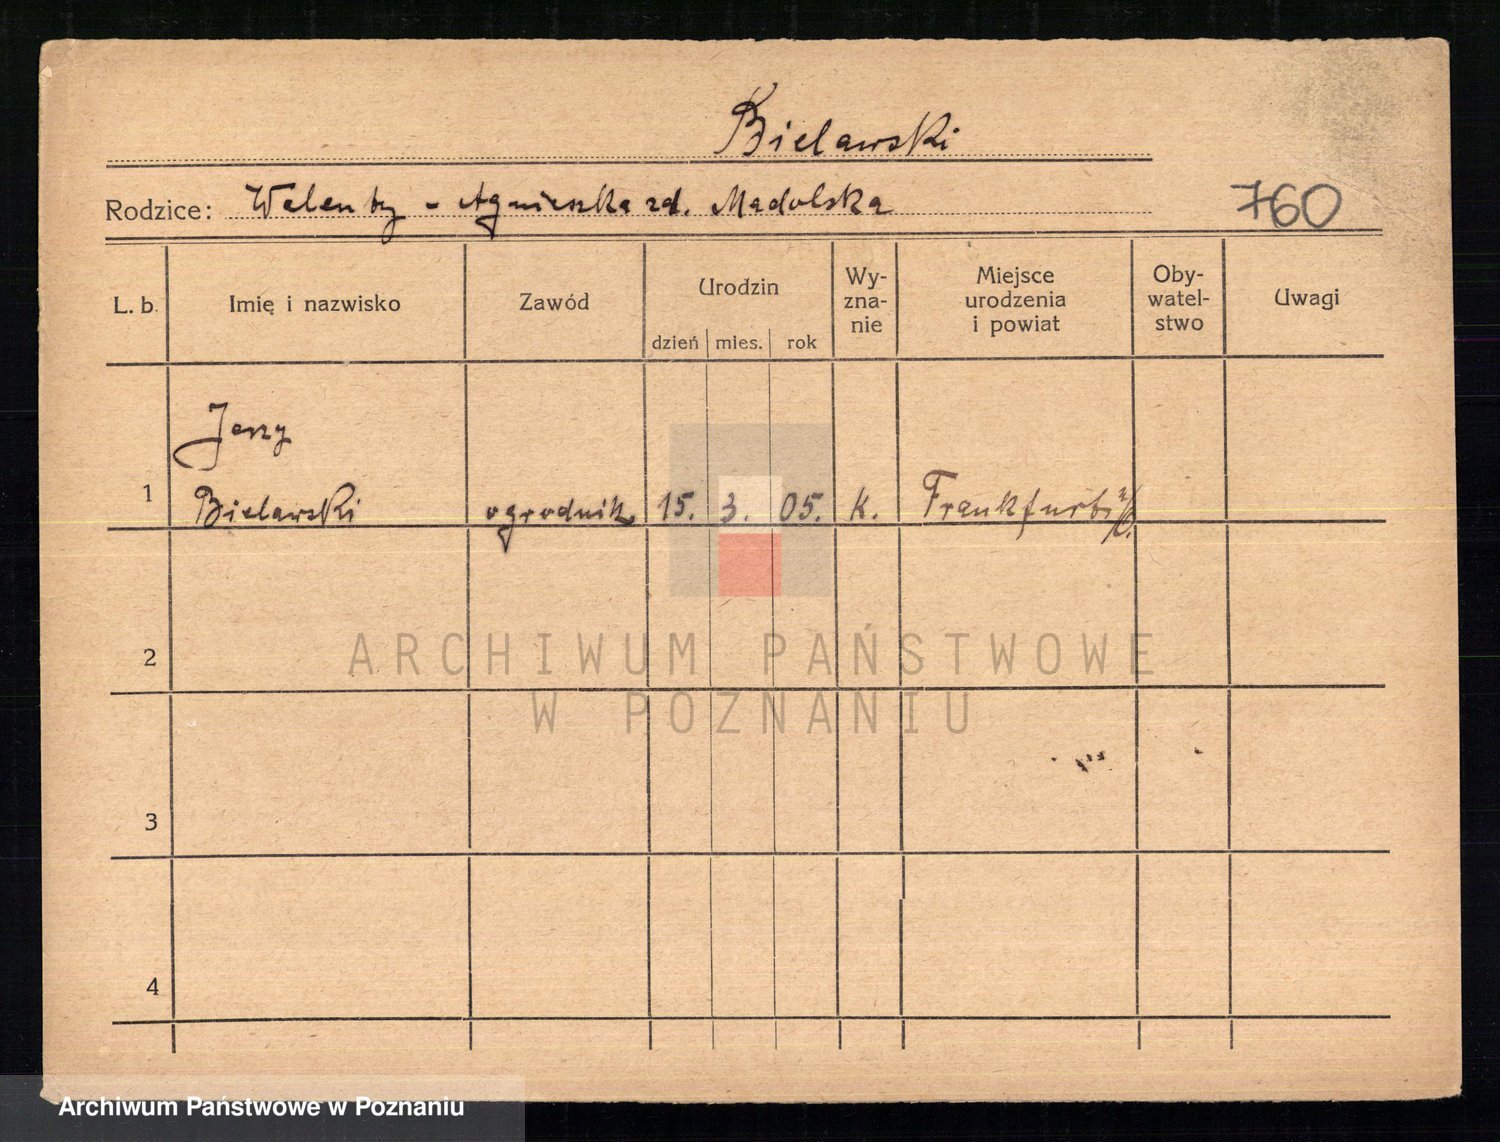 Bielawski
Rodzice: Walenty - Agnieszka zd. Madolska
760
L. b. Imię i nazwisko Zawód Urodzin dzień mies. rok Wy-zna-nie Miejsce urodzenia i powiat Oby-watel-stwo Uwagi
Jerzy
1 Bielawski ogrodnik 15. 3. 05. k. Frankfurt
2
ARCHIWUM PAŃSTWOWE
W POZNANIU
3
4
Archiwum Państwowe w Poznaniu